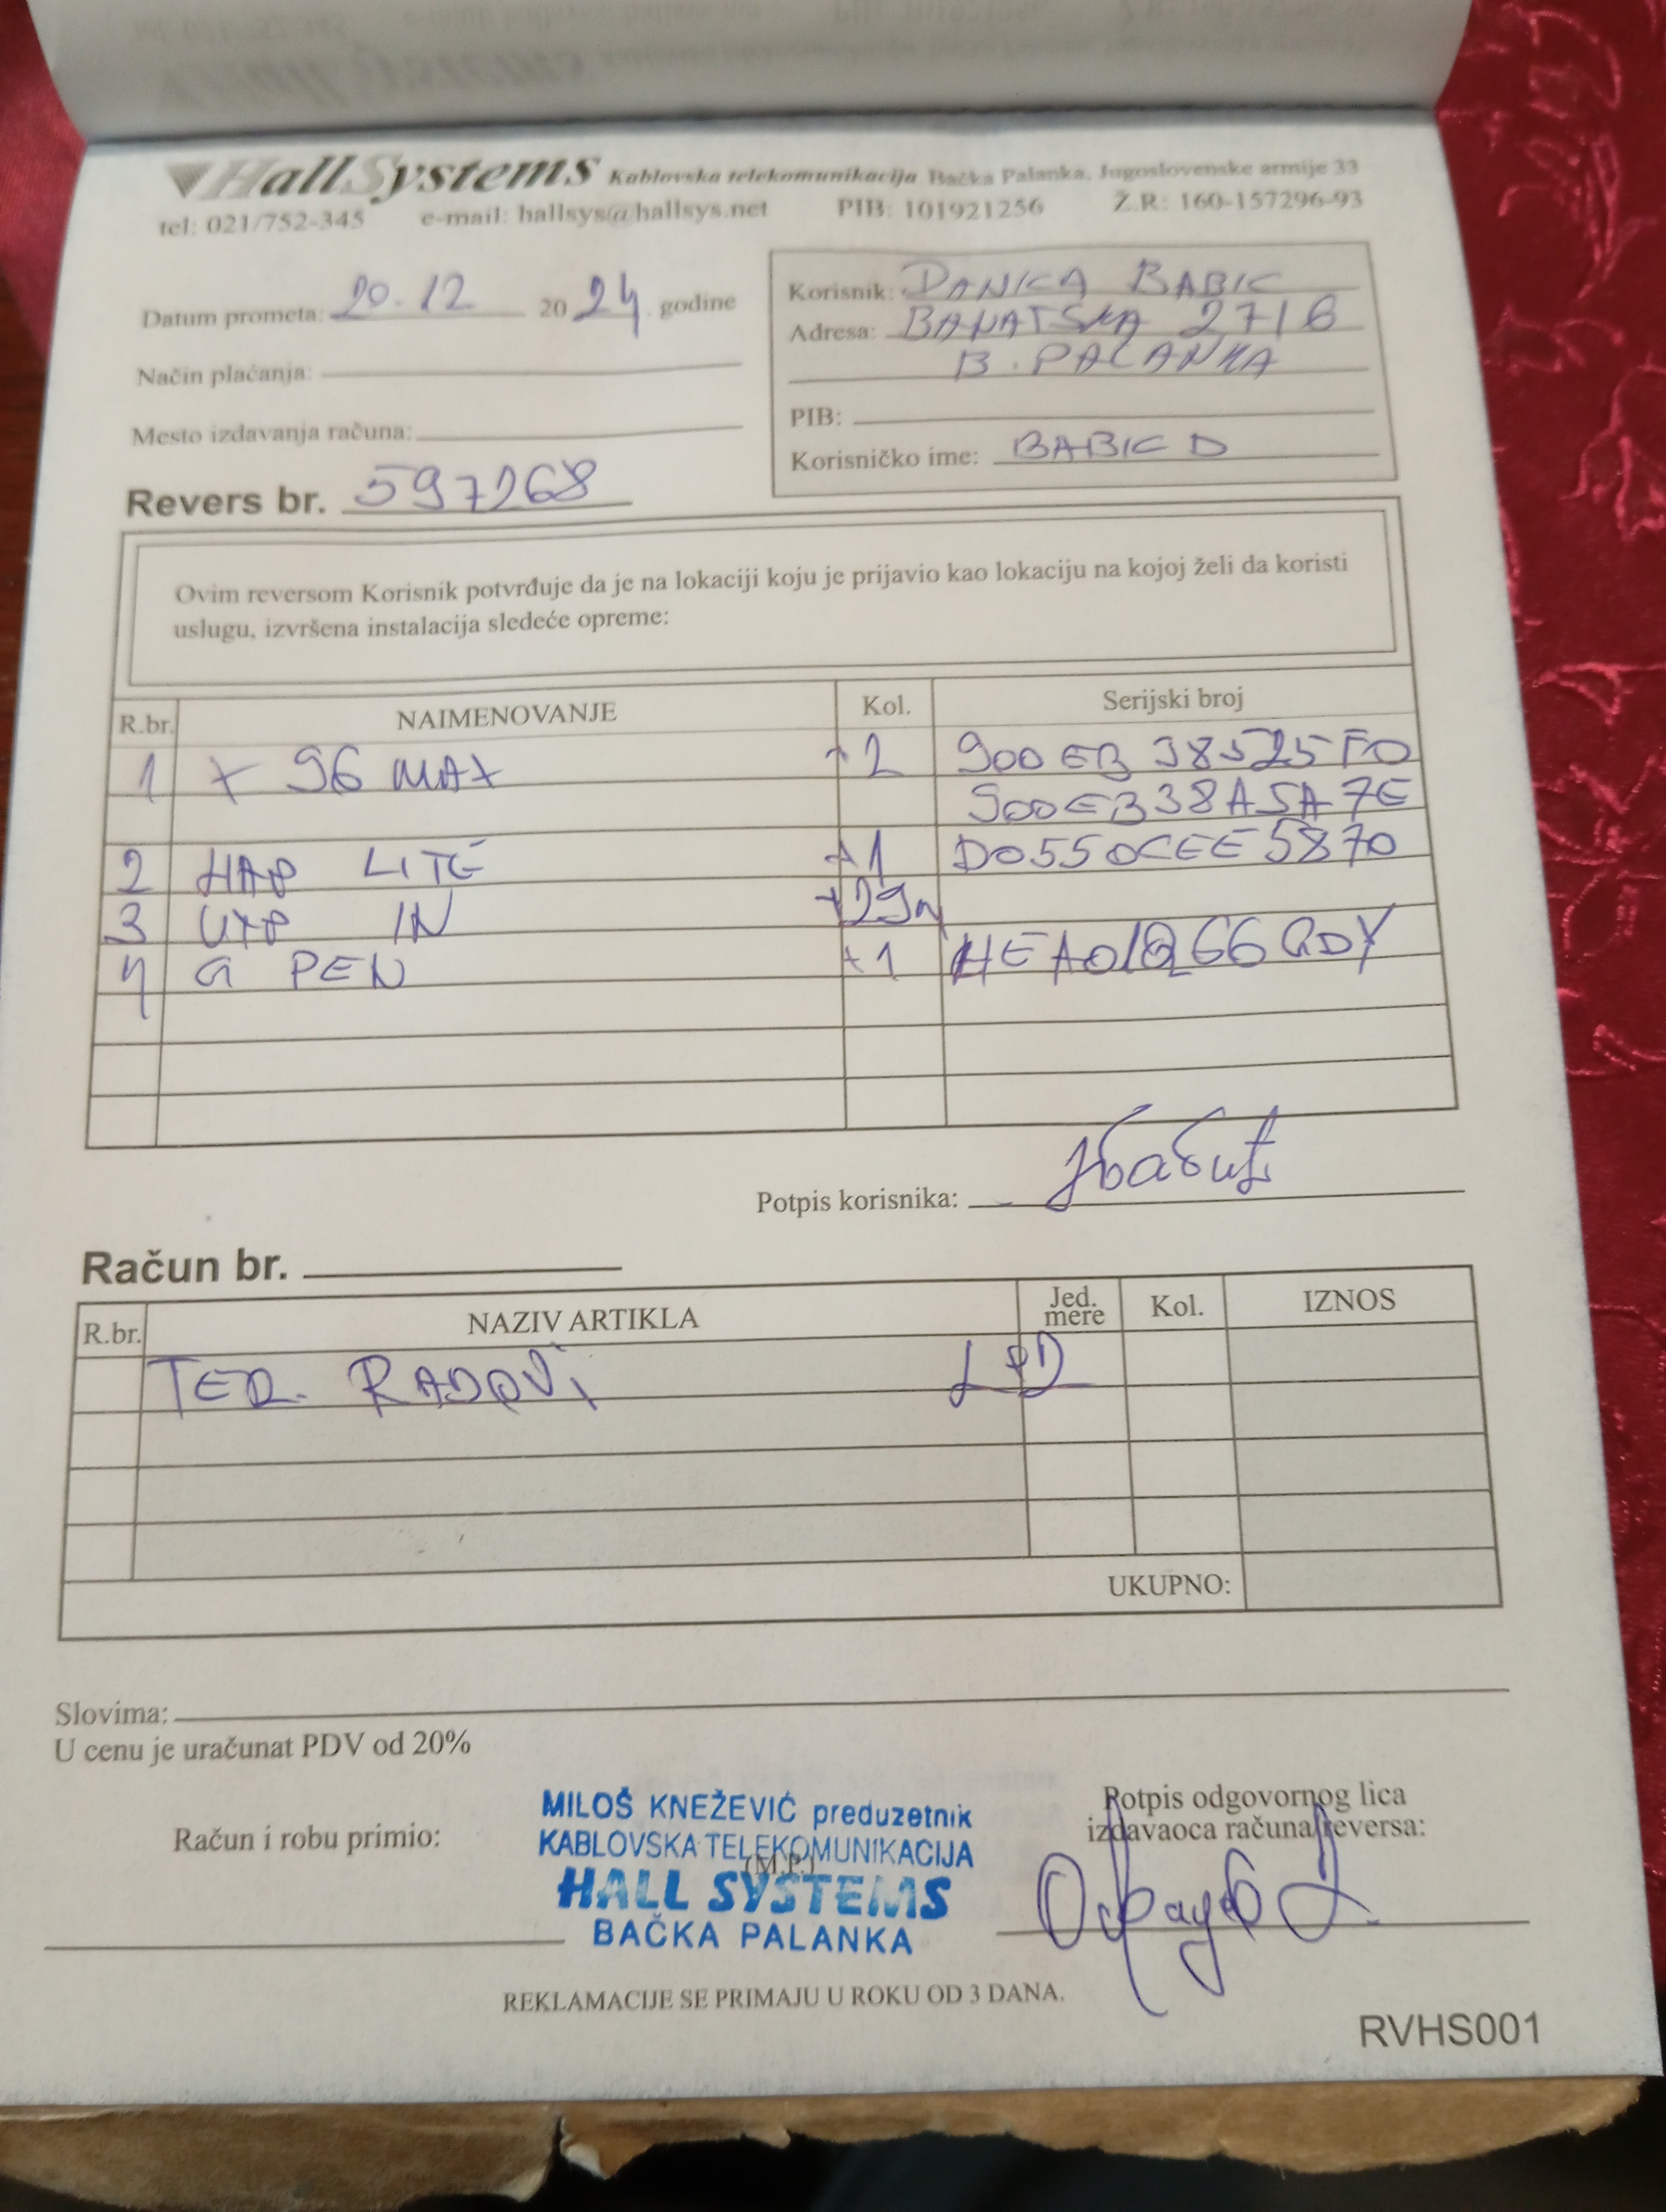 HallSystems Kablovska telekomunikacija Bačka Palanka, Jugoslovenske armije 33
tel: 021/752-345 e-mail: hallsys@hallsys.net PIB: 101921256 Ž.R: 160-157296-93
Datum prometa: 20.12 2024. godine
Način plaćanja:
Mesto izdavanja računa:
Revers br. 597268
Korisnik: DANICA BABIC
Adresa: BANATSKA 27/6
B. PALANKA
PIB:
Korisničko ime: BABIC D
Ovim reversom Korisnik potvrđuje da je na lokaciji koju je prijavio kao lokaciju na kojoj želi da koristi
uslugu, izvršena instalacija sledeće opreme:
R.br. NAIMENOVANJE Kol. Serijski broj
1 X 96 MAX +2 900EB38525FO
900EB38A5A7E
2 HAP LITE +1 D0550CEE5870
3 UTP IN +29m
4 G PEN +1
Potpis korisnika:
Račun br.
R.br. NAZIV ARTIKLA Jed. mere Kol. IZNOS
TER. RADOVI
UKUPNO:
Slovima:
U cenu je uračunat PDV od 20%
Račun i robu primio:
MILOŠ KNEŽEVIĆ preduzetnik
KABLOVSKA TELEKOMUNIKACIJA
(M.P.)
HALL SYSTEMS
BAČKA PALANKA
Potpis odgovornog lica
izdavaoca računa/reversa:
REKLAMACIJE SE PRIMAJU U ROKU OD 3 DANA.
RVHS001